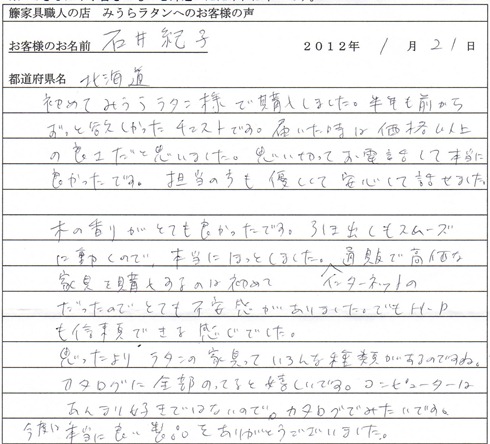 籐家具職人の店　みうらラタンへのお客様の声
お客様のお名前　石井紀子　２０１２年　1　月　21　日
都道府県名　北海道
初めてみうらラタン様で購入しました。半年も前から
ずっと欲しかったチェストです。届いた時は価格以上
の良さだと思いました。思い切ってお電話して本当に
良かったです。担当の方も優しくて安心して話せました。
木の香りがとても良かったです。引き出しもスムーズ
に動くので、本当にほっとしました。通販で高価な
家具を購入するのは初めて　インターネットの
だったのでとても不安感がありました。でもH・P
も信頼できる感じでした。
思ったよりラタンの家具っていろんな種類があるのですね。
カタログに全部のってると嬉しいです。コンピューターは
あんまり好きではないので。カタログでみたいです。
今度は本当に良い製品をありがとうございました。